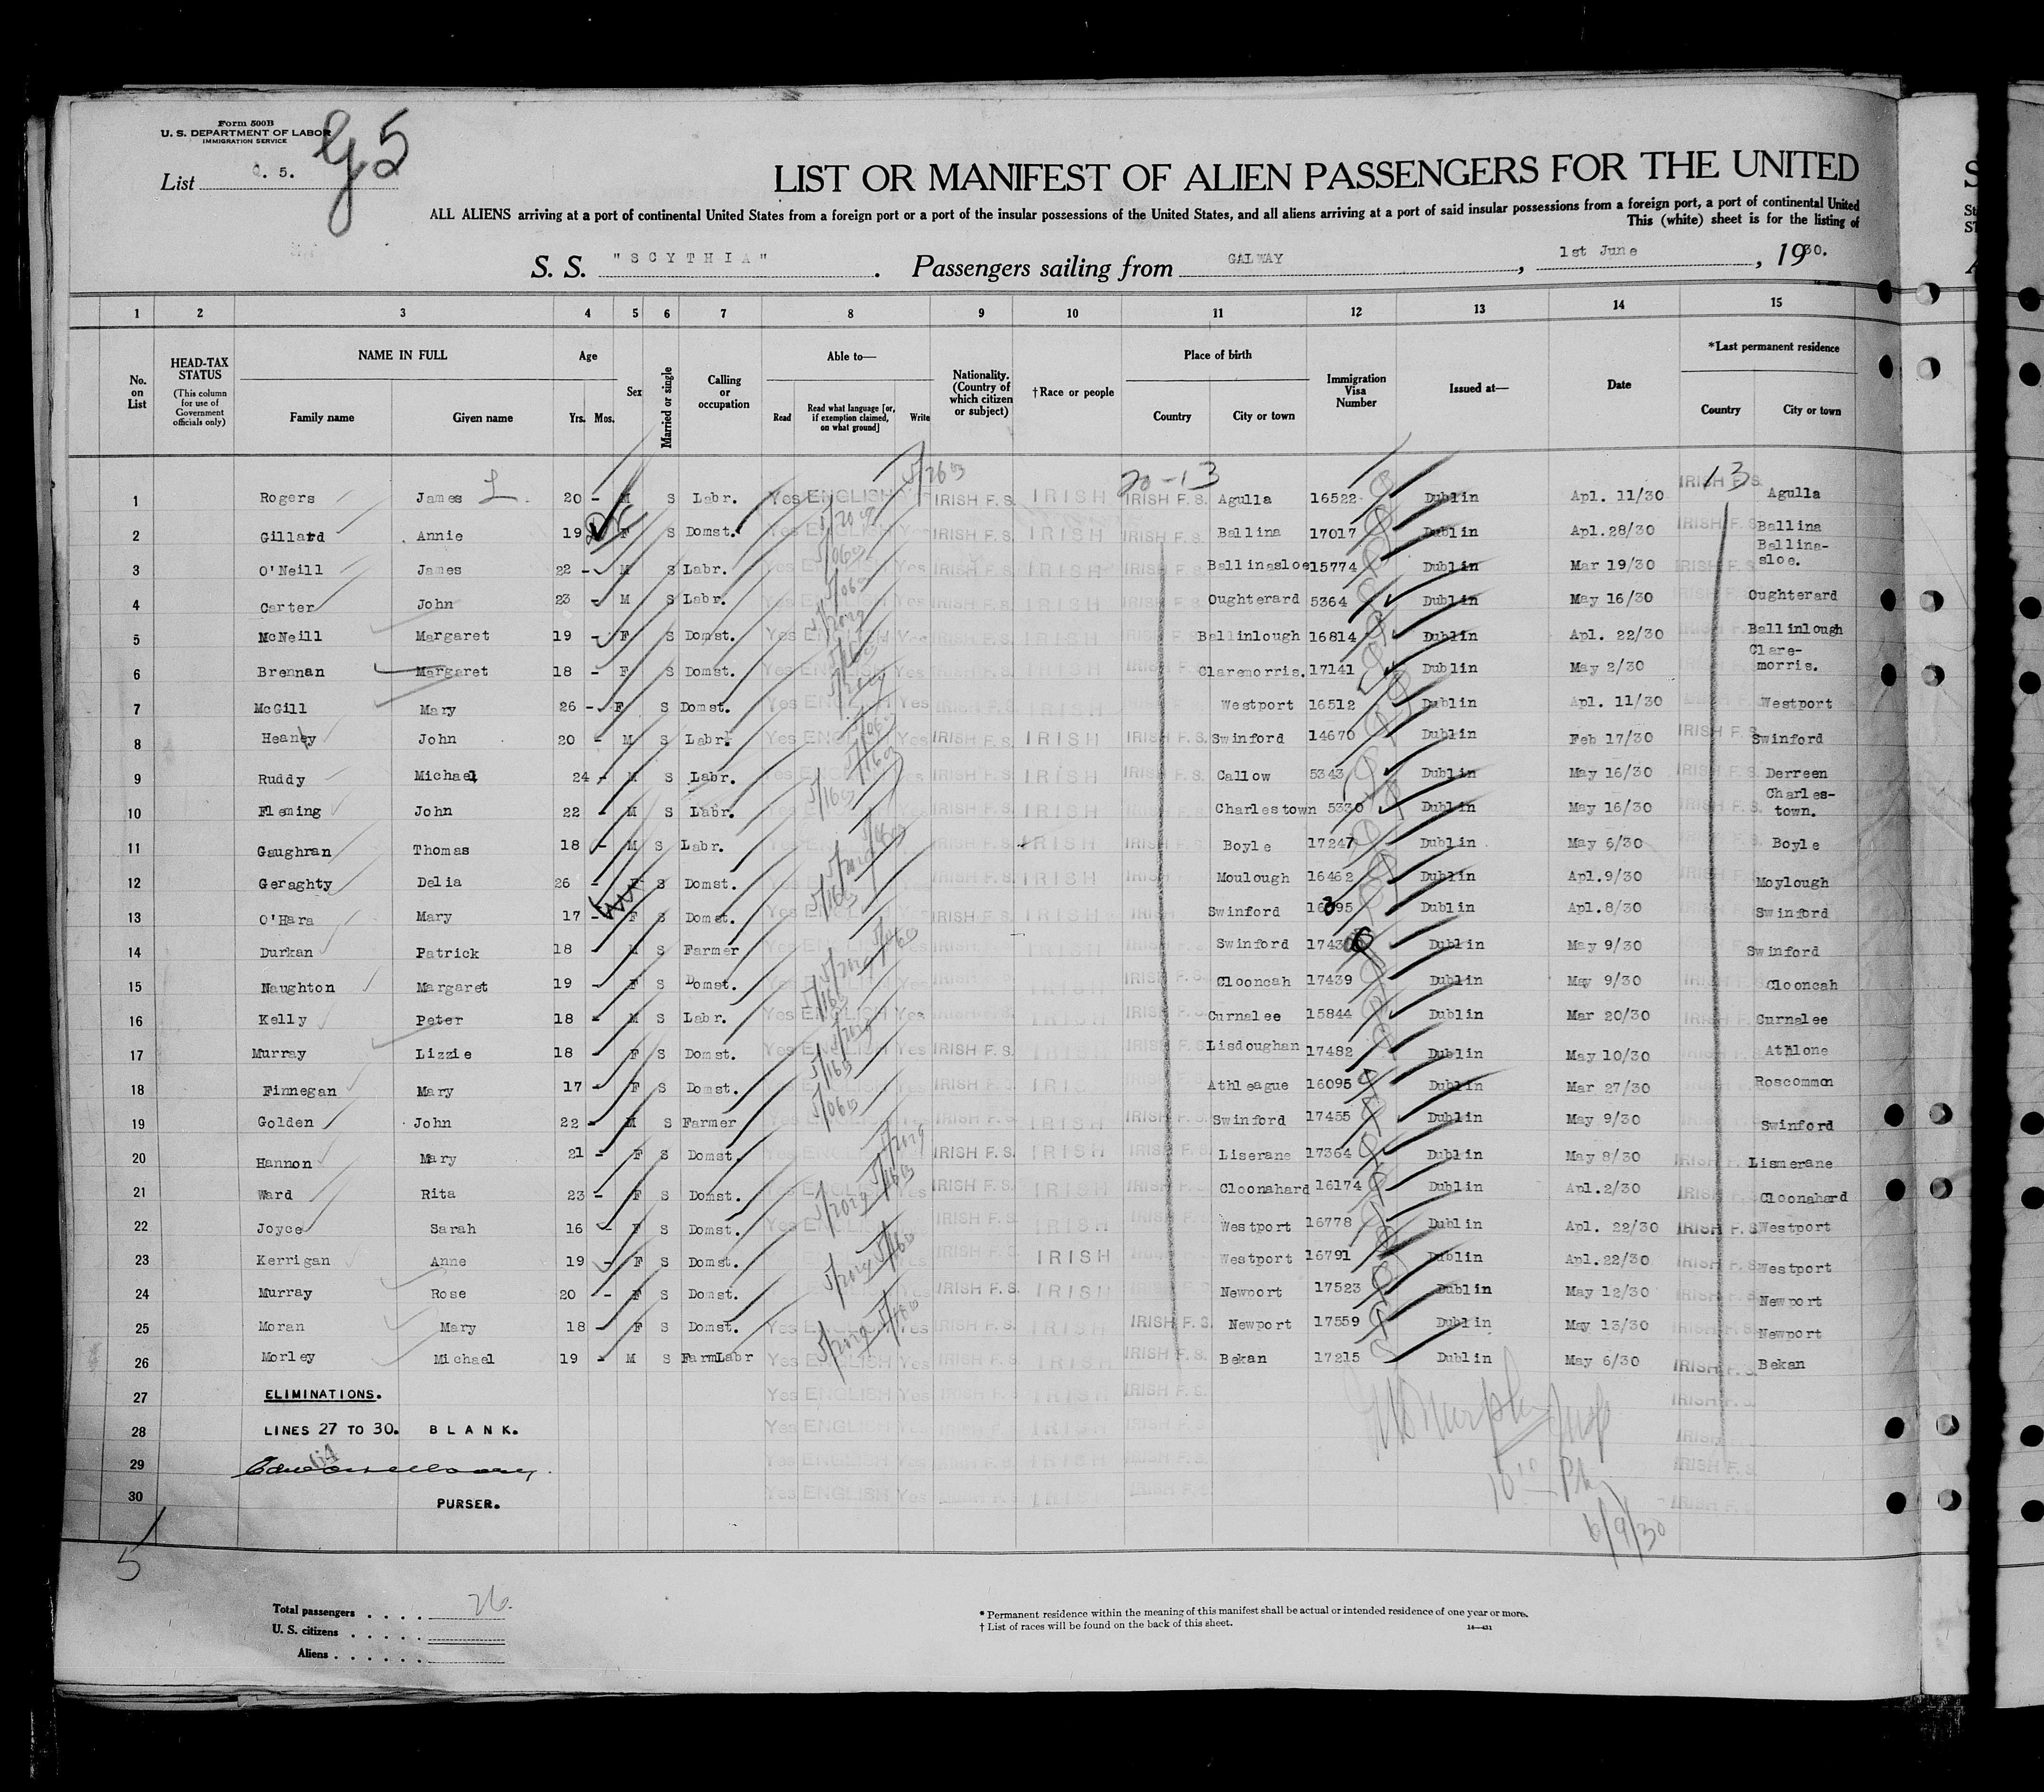 Form 500B
U. S. DEPARTMENT OF LABOR
IMMIGRATION SERVICE
G 5
List 5.
LIST OR MANIFEST OF ALIEN PASSENGERS FOR THE UNITED
ALL ALIENS arriving at a port of continental United States from a foreign port or a port of the insular possessions of the United States, and all aliens arriving at a port of said insular possessions from a foreign port, a port of continental United
This (white) sheet is for the listing of
S. S. "SCYTHIA". Passengers sailing from GALWAY, 1st June, 1930.
1 2 3 4 5 6 7 8 9 10 11 12 13 14 15
No. on List
HEAD-TAX STATUS (This column for use of Government officials only)
NAME IN FULL Family name Given name
Age Yrs. Mos.
Sex
Married or single
Calling or occupation
Able to— Read Read what language [or, if exemption claimed, on what ground] Write
Nationality. (Country of which citizen or subject)
†Race or people
Place of birth Country City or town
Immigration Visa Number
Issued at—
Date
*Last permanent residence Country City or town
5/26 20-13 13
1 Rogers James 20 - M S Labr. Yes ENGLISH Yes IRISH F. S. IRISH IRISH F. S. Agulla 16522 Dublin Apl. 11/30 IRISH F. S. Agulla
2 Gillard Annie 19 F S Domst. Yes ENGLISH Yes IRISH F. S. IRISH IRISH F. S. Ballina 17017 Dublin Apl.28/30 IRISH F. S. Ballina
3 O'Neill James 22 - M S Labr. Yes ENGLISH Yes IRISH F. S. IRISH IRISH F. S. Ballinasloe 15774 Dublin Mar 19/30 IRISH F. S. Ballina-sloe.
4 Carter John 23 - M S Labr. Yes ENGLISH Yes IRISH F. S. IRISH IRISH F. S. Oughterard 5364 Dublin May 16/30 IRISH F. S. Oughterard
5 McNeill Margaret 19 - F S Domst. Yes ENGLISH Yes IRISH F. S. IRISH IRISH F. S. Ballinlough 16814 Dublin Apl. 22/30 IRISH F. S. Ballinlough
6 Brennan Margaret 18 - F S Domst. Yes ENGLISH Yes IRISH F. S. IRISH IRISH F. S. Claremorris. 17141 Dublin May 2/30 IRISH F. S. Clare-morris.
7 McGill Mary 26 - F S Domst. Yes ENGLISH Yes IRISH F. S. IRISH IRISH F. S. Westport 16512 Dublin Apl. 11/30 IRISH F. S. Westport
8 Heaney John 20 - M S Labr. Yes ENGLISH Yes IRISH F. S. IRISH IRISH F. S. Swinford 14670 Dublin Feb 17/30 IRISH F. S. Swinford
9 Ruddy Michael 24 - M S Labr. Yes ENGLISH Yes IRISH F. S. IRISH IRISH F. S. Callow 5343 Dublin May 16/30 IRISH F. S. Derreen
10 Fleming John 22 - M S Labr. Yes ENGLISH Yes IRISH F. S. IRISH IRISH F. S. Charlestown 5330 Dublin May 16/30 IRISH F. S. Charles-town.
11 Gaughran Thomas 18 - M S Labr. Yes ENGLISH Yes IRISH F. S. IRISH IRISH F. S. Boyle 17247 Dublin May 6/30 IRISH F. S. Boyle
12 Geraghty Delia 26 - F S Domst. Yes ENGLISH Yes IRISH F. S. IRISH IRISH F. S. Moulough 16462 Dublin Apl.9/30 IRISH F. S. Moylough
13 O'Hara Mary 17 - F S Domst. Yes ENGLISH Yes IRISH F. S. IRISH IRISH Swinford 16395 Dublin Apl.8/30 IRISH F. S. Swinford
14 Durkan Patrick 18 M S Farmer Yes ENGLISH Yes IRISH F. S. IRISH IRISH F. S. Swinford 17436 Dublin May 9/30 IRISH F. S. Swinford
15 Naughton Margaret 19 - F S Domst. Yes ENGLISH Yes IRISH F. S. IRISH IRISH F. S. Clooncah 17439 Dublin May 9/30 IRISH F. S. Clooncah
16 Kelly Peter 18 - M S Labr. Yes ENGLISH Yes IRISH F. S. IRISH IRISH F. S. Curnalee 15844 Dublin Mar 20/30 IRISH F. S. Curnalee
17 Murray Lizzie 18 F S Domst. Yes ENGLISH Yes IRISH F. S. IRISH IRISH F. S. Lisdoughan 17482 Dublin May 10/30 IRISH F. S. Athlone
18 Finnegan Mary 17 - F S Domst. Yes ENGLISH Yes IRISH F. S. IRISH IRISH F. S. Athleague 16095 Dublin Mar 27/30 IRISH F. S. Roscommon
19 Golden John 22 - M S Farmer Yes ENGLISH Yes IRISH F. S. IRISH IRISH F. S. Swinford 17455 Dublin May 9/30 IRISH F. S. Swinford
20 Hannon Mary 21 - F S Domst. Yes ENGLISH Yes IRISH F. S. IRISH IRISH F. S. Liserane 17364 Dublin May 8/30 IRISH F. S. Lismerane
21 Ward Rita 23 - F S Domst. Yes ENGLISH Yes IRISH F. S. IRISH IRISH F. S. Cloonahard 16174 Dublin Apl.2/30 IRISH F. S. Cloonahard
22 Joyce Sarah 16 - F S Domst. Yes ENGLISH Yes IRISH F. S. IRISH IRISH F. S. Westport 16778 Dublin Apl. 22/30 IRISH F. S. Westport
23 Kerrigan Anne 19 - F S Domst. Yes ENGLISH Yes IRISH F. S. IRISH IRISH F. S. Westport 16791 Dublin Apl.22/30 IRISH F. S. Westport
24 Murray Rose 20 - F S Domst. Yes ENGLISH Yes IRISH F. S. IRISH IRISH F. S. Newport 17523 Dublin May 12/30 IRISH F. S. Newport
25 Moran Mary 18 F S Domst. Yes ENGLISH Yes IRISH F. S. IRISH IRISH F. S. Newport 17559 Dublin May 13/30 IRISH F. S. Newport
26 Morley Michael 19 - M S FarmLabr Yes ENGLISH Yes IRISH F. S. IRISH IRISH F. S. Bekan 17215 Dublin May 6/30 IRISH F. S. Bekan
27 ELIMINATIONS. Yes ENGLISH Yes IRISH F. S. IRISH IRISH F. S. IRISH F. S.
28 LINES 27 TO 30. BLANK. Yes ENGLISH Yes IRISH F. S. IRISH IRISH F. S. IRISH F. S.
29 Yes ENGLISH Yes IRISH F. S. IRISH IRISH F. S. IRISH F. S.
30 PURSER. Yes ENGLISH Yes IRISH F. S. IRISH IRISH F. S. IRISH F. S.
6/9/30
5
Total passengers . . . . 26.
U. S. citizens . . . . .
Aliens . . . . . .
* Permanent residence within the meaning of this manifest shall be actual or intended residence of one year or more.
† List of races will be found on the back of this sheet.
14—431